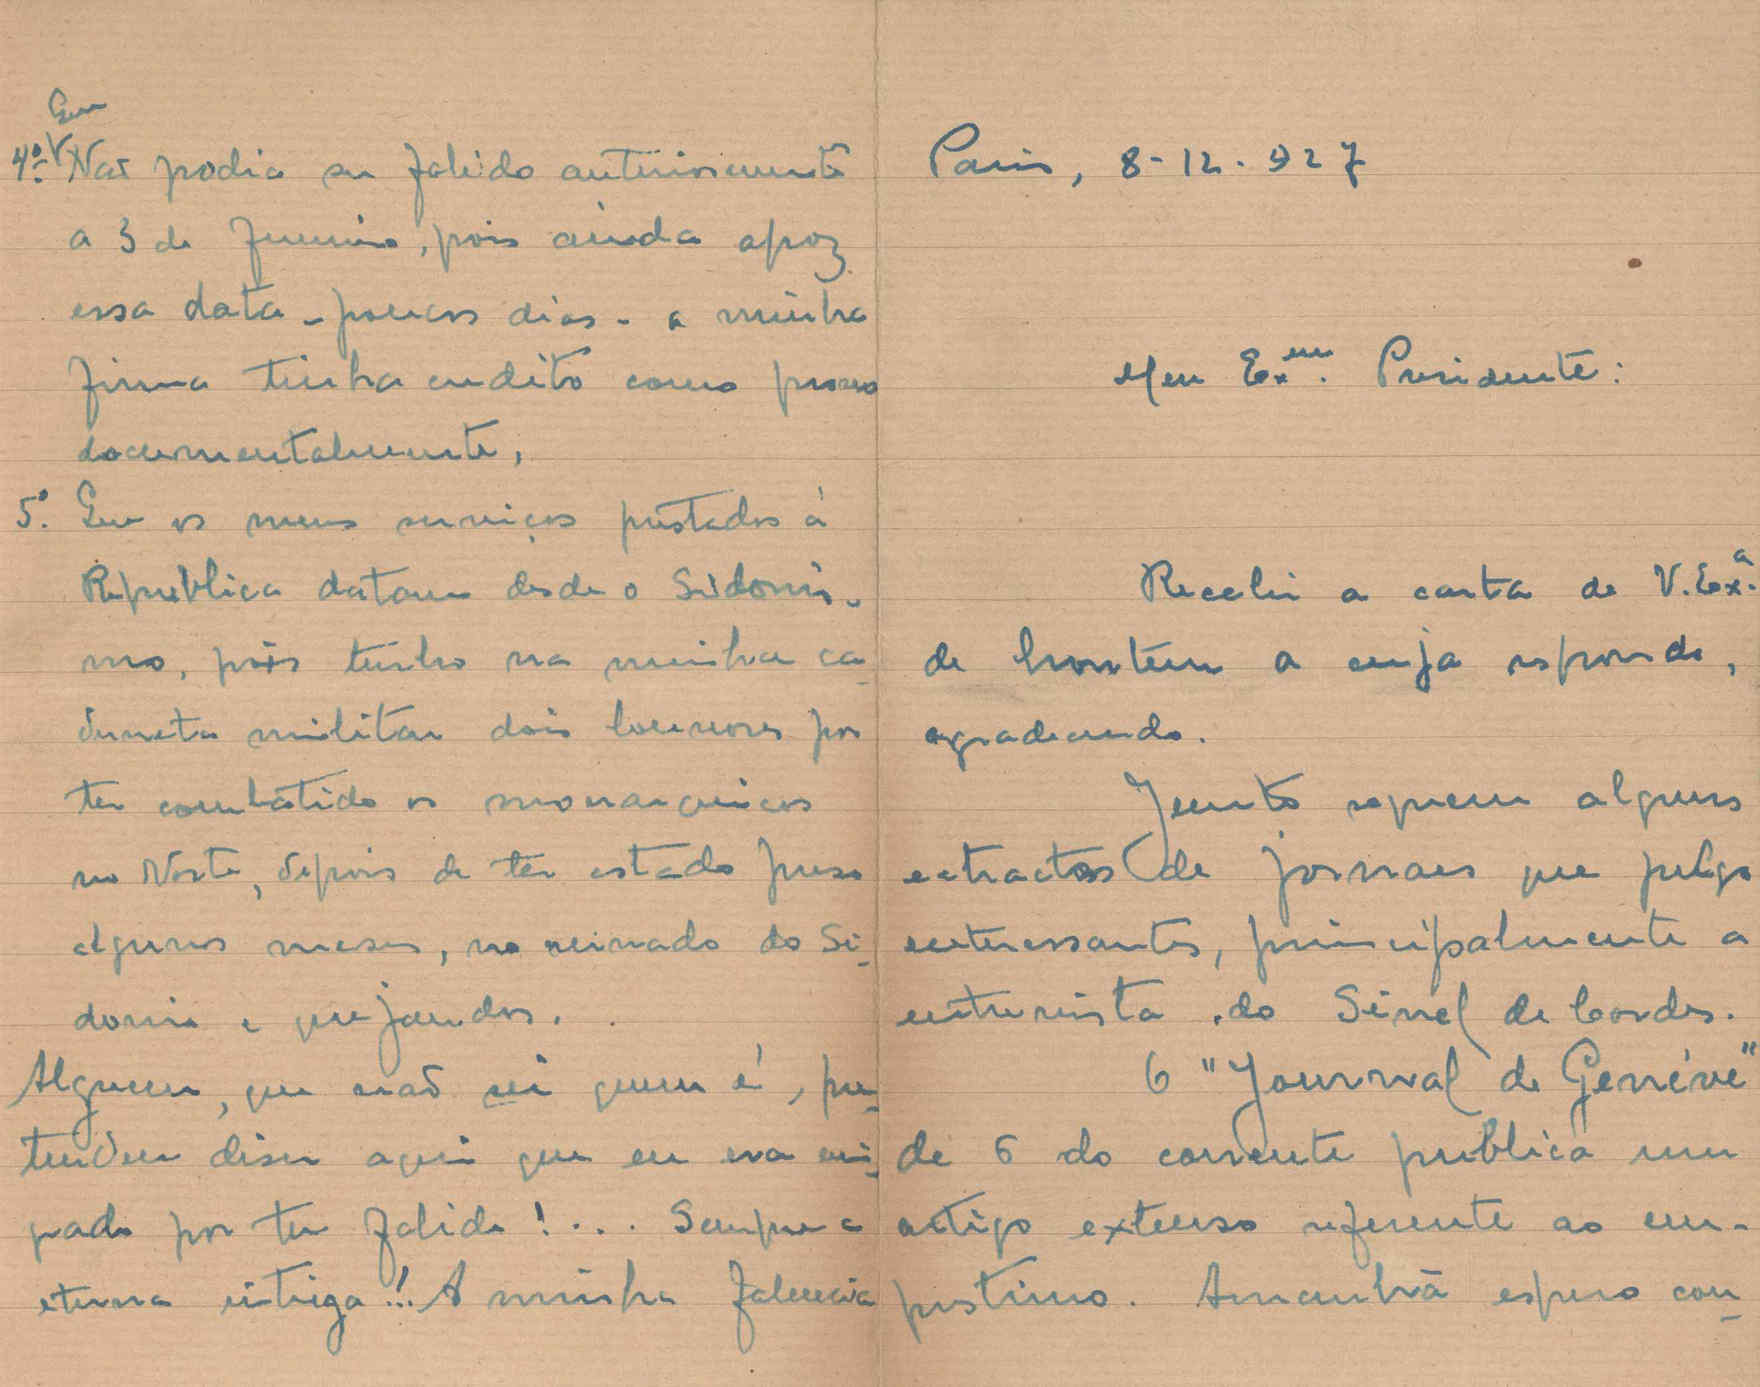 Paris, 8-12-927
Meu Ex.mo Presidente:
Recebi a carta de V. Ex.a
de hontem a cuja respondo,
agradecendo.
Junto seguem alguns
extractos de jornaes que julgo
enteressantes, principalmente a
entrevista do Sinel de Cordes.
O "Journal de Genéve"
de 6 do corrente publica um
artigo extenso referente ao em-
prestimo. Amanhã espero con-
4º. Que Não podia ser falido anteriormente
a 3 de Junho, pois ainda apoz
essa data - poucos dias - a minha
firma tinha credito como provo
documentalmente,
5º. Que os meus serviços prestados á
Republica datam desde o Sidonis-
mo, pois tenho na minha ca-
derneta militar dois louvores por
ter combatido os monarquicos
no Norte, depois de ter estado preso
alguns meses, no reinado do Si-
donio e quejandos.
Alguem, que não sei quem é, pre-
tendeu diser aqui que eu era emi-
grado por ter falido!... Sempre a
eterna intriga!!! A minha falencia